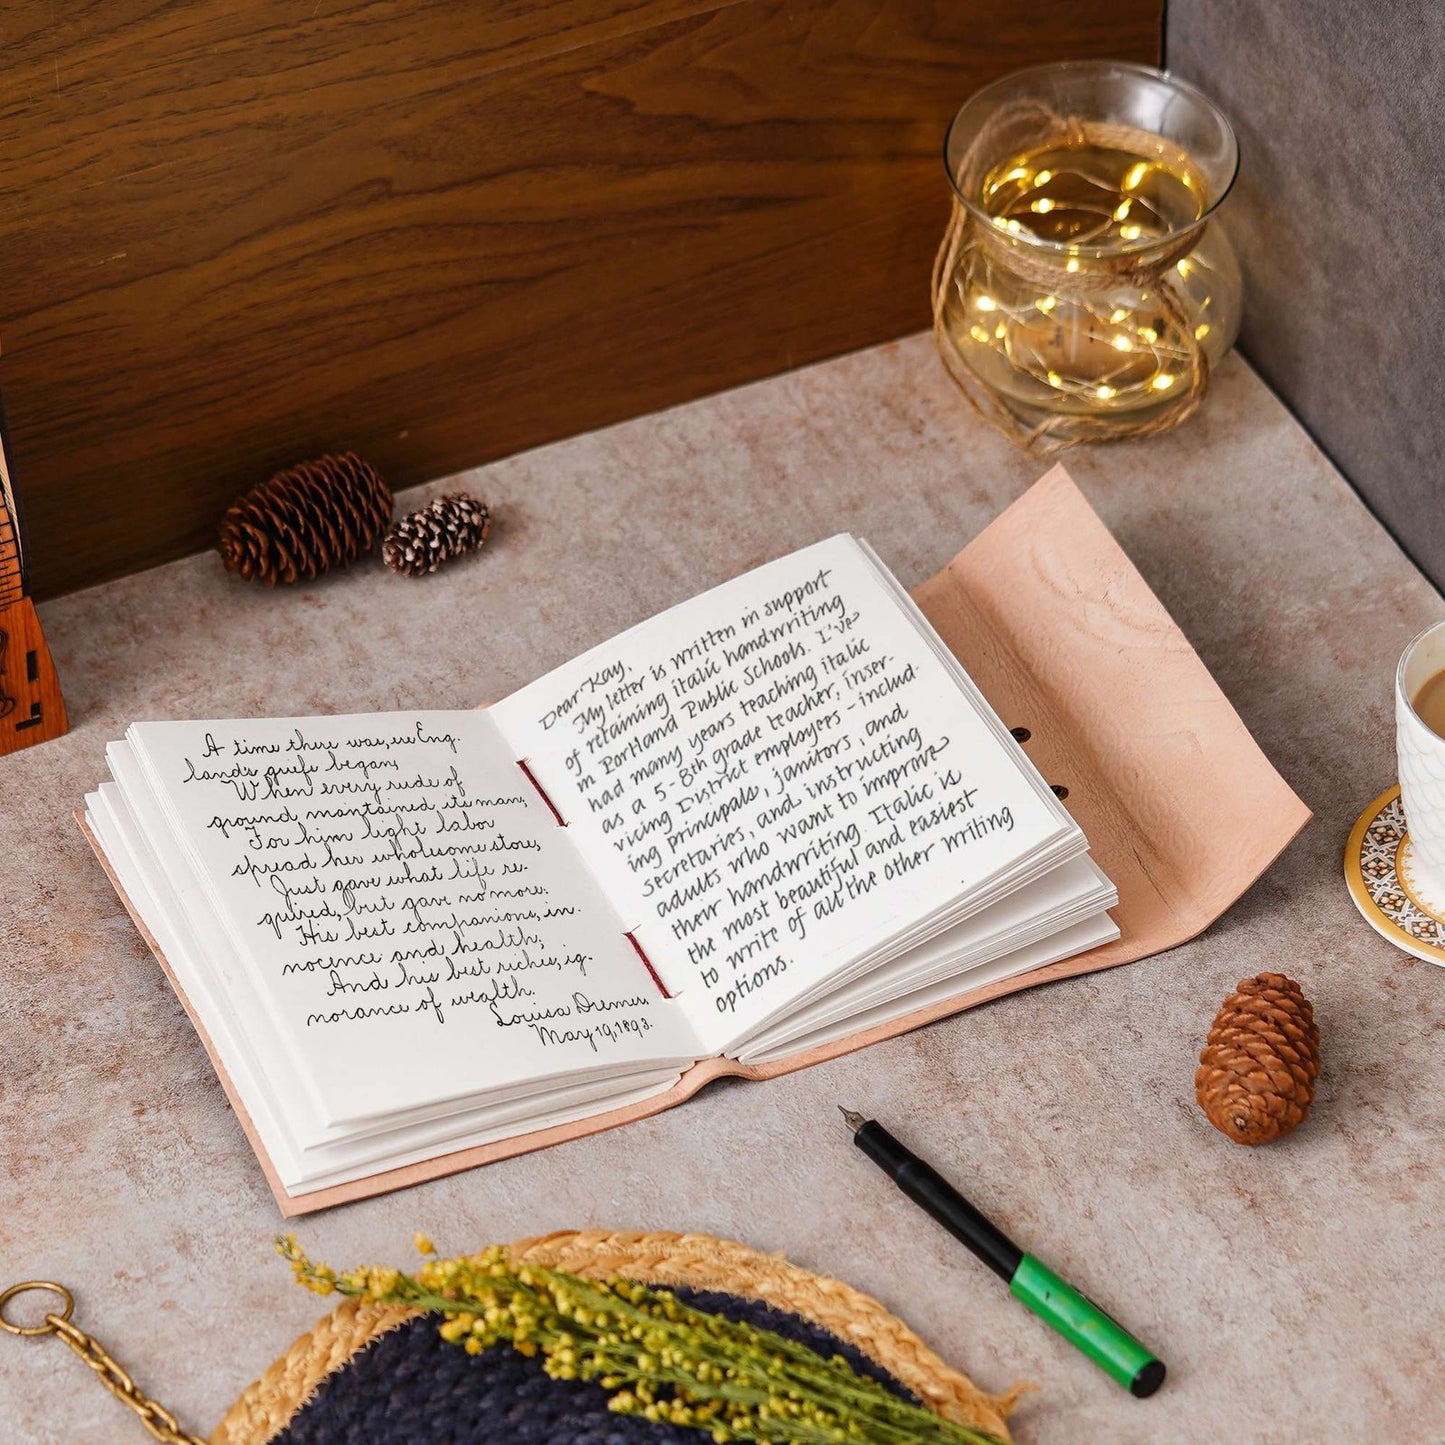 A time there was, ere Eng-
land's griefs began,
When every rude of
ground maintained its man;
For him light labor
spread her wholesome store,
Just gave what life re-
quired, but gave no more;
His best companions, in-
nocence and health;
And his best riches, ig-
norance of wealth.
Louisa Diemer,
May 19, 1893.
Dear Kay,
My letter is written in support
of retaining italic handwriting
in Portland Public Schools. I've
had many years teaching italic
as a 5-8th grade teacher, inser-
vicing District employees - includ-
ing principals, janitors, and
secretaries, and instructing
adults who want to improve
their handwriting. Italic is
the most beautiful and easiest
to write of all the other writing
options.